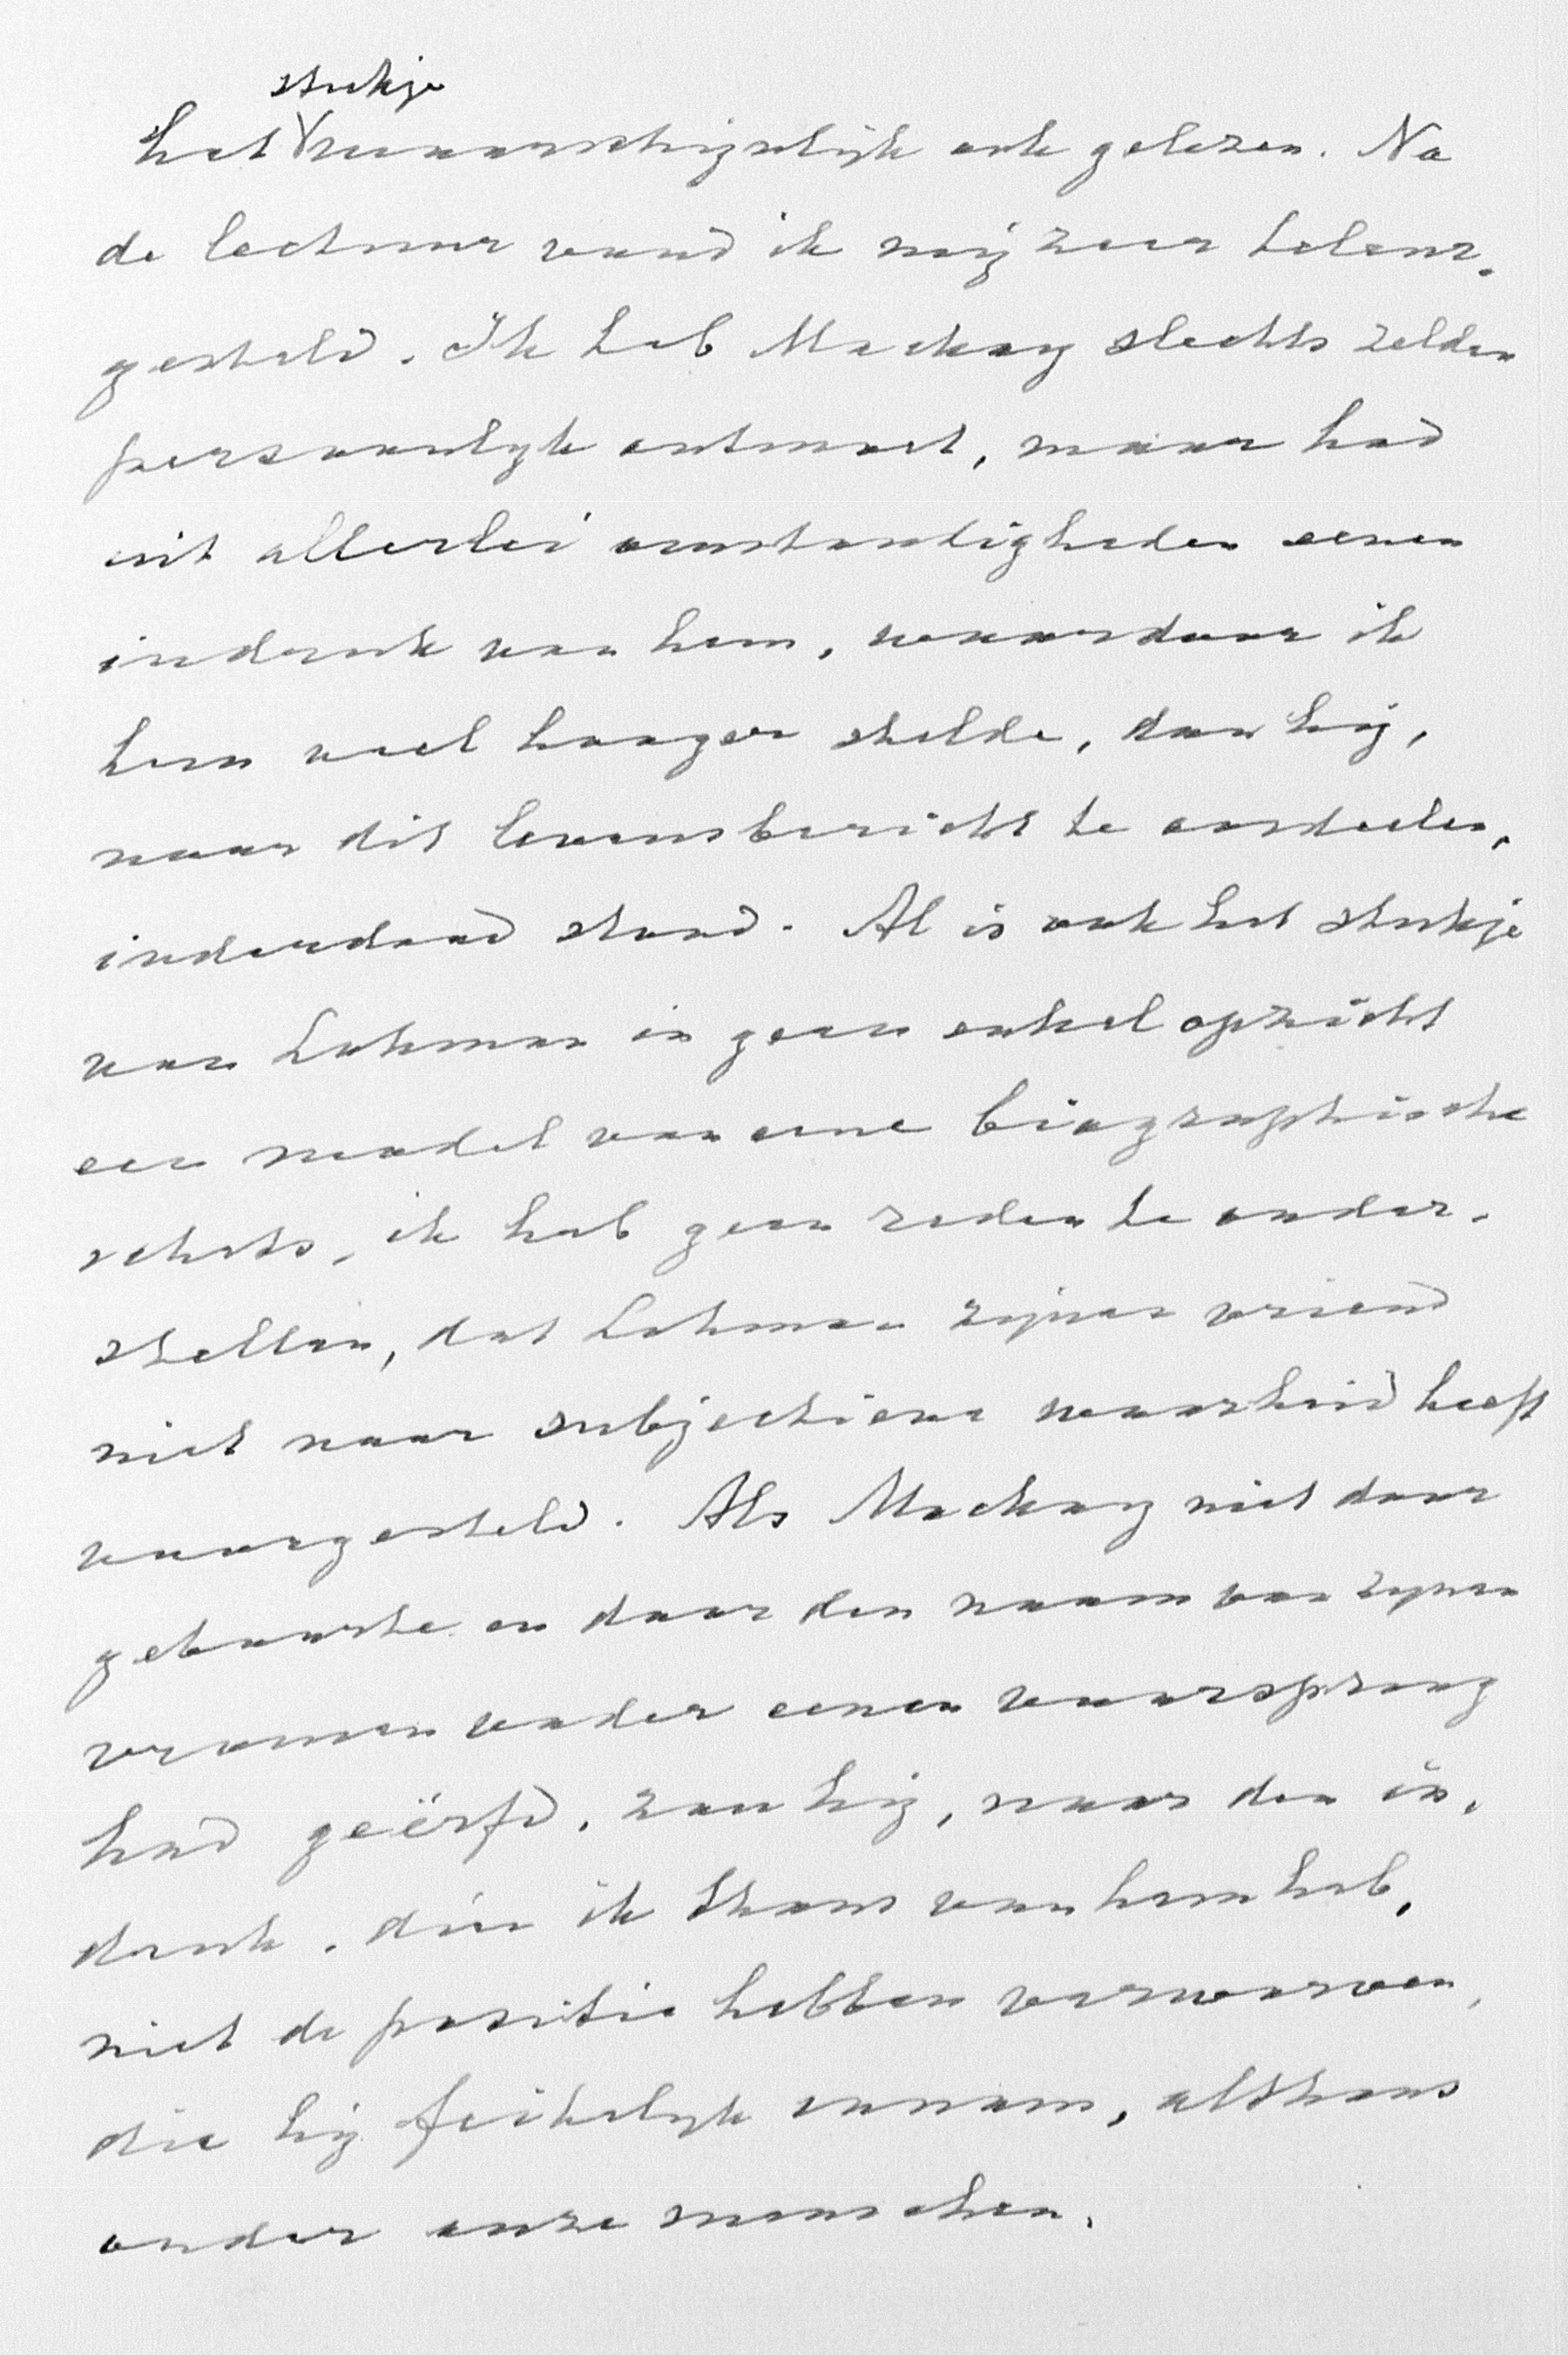 stukje
het waarschijnlijk ook gelezen. Na
de lectuur vond ik mij zeer teleur-
gesteld. Ik heb Mackay slechts zelden
persoonlijk ontmoet, maar had
uit allerlei omstandigheden eenen
indruk van hem, waardoor ik
hem veel hooger stelde, dan hij,
naar dit levensbericht te oordeelen,
inderdaad stond. Al is ook het stukje
van Lohman in geen enkel opzicht
een model van eene biographische
schets, ik heb geen reden te onder-
stellen, dat Lohman zijnen vriend
niet naar subjectieve waarheid heeft
voorgesteld. Als Mackay niet door
geboorte en door den naam van zijnen
vromen vader eenen voorsprong
had geërfd, zou hij, naar den in-
druk, dien ik thans van hem heb,
niet de positie hebben verworven,
die hij feitelijk innam, althans
onder onze menschen.